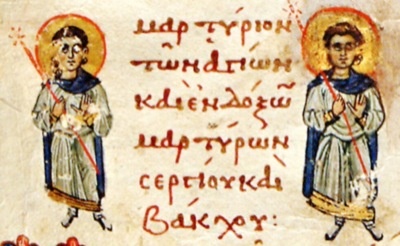 μαρτύριον
τῶν ἁγίων
καὶ ἐνδόξω
μαρτύρων
σεργίου καὶ
βάκχου: